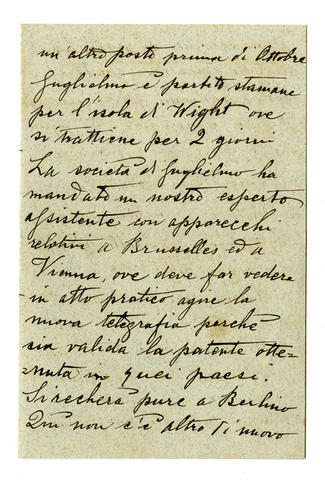 un altro posto prima di Ottobre
Guglielmo è partito stamane
per l'isola di Wight ove
si trattiene per 2 giorni
La società di Guglielmo ha
mandato un nostro esperto
assistente con apparecchi
relativi a Brusselles ed a
Vienna, ove deve far vedere
in atto pratico la
nuova telegrafia perchè
sia valida la patente otte=
=nuta in quei paesi.
Si recherà pure a Berlino
Qui non c'è altro di nuovo